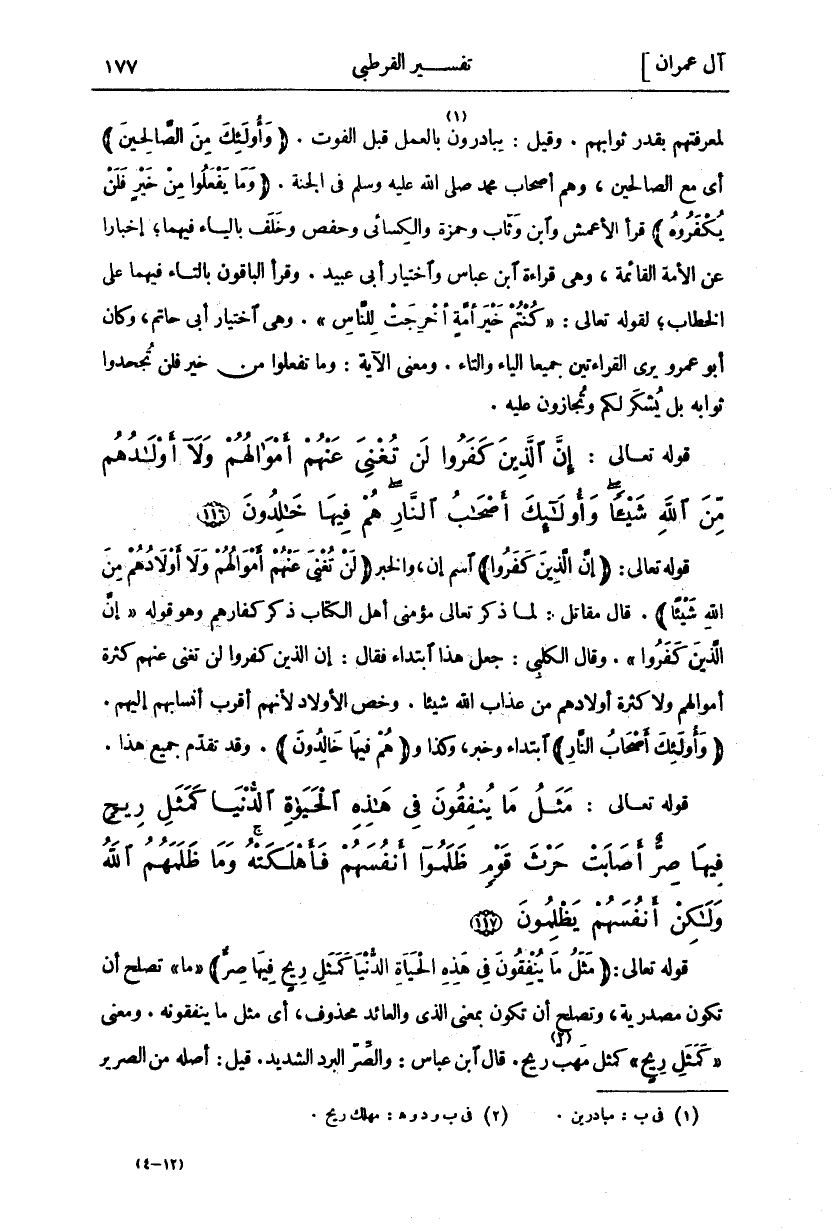 آل عمران ] تفسير القرطبى ١٧٧
لمعرفتهم بقدر ثوابهم . وقيل : يبادرون(١) بالعمل قبل الفوت . ﴿ وَأُولَئِكَ مِنَ الصَّالِحِينَ ﴾
أى مع الصالحين ، وهم أصحاب محمد صلى الله عليه وسلم فى الجنة . ﴿ وَمَا يَفْعَلُوا مِنْ خَيْرٍ فَلَنْ
يُكْفَرُوهُ ﴾ قرأ الأعمش وآبن وَثّاب وحمزة والكسائى وحفص وخَلَف بالياء فيهما؛ إخبارا
عن الأمة القائمة ، وهى قراءة آبن عباس وآختيار أبى عبيد . وقرأ الباقون بالتاء فيهما على
الخطاب؛ لقوله تعالى : « كُنْتُمْ خَيْرَ أُمَّةٍ أُخْرِجَتْ لِلنَّاسِ » . وهى آختيار أبى حاتم، وكان
أبو عمرو يرى القراءتين جميعا الياء والتاء . ومعنى الآية : وما تفعلوا من خير فلن تُجحدوا
ثوابه بل يُشكَر لكم وتُجازون عليه .
قوله تعالى : إِنَّ ٱلَّذِينَ كَفَرُوا لَن تُغْنِىَ عَنْهُمْ أَمْوَٰلُهُمْ وَلَآ أَوْلَـٰدُهُم
مِّنَ ٱللَّهِ شَيْـًٔا ۖ وَأُولَـٰٓئِكَ أَصْحَـٰبُ ٱلنَّارِ ۖ هُمْ فِيهَا خَـٰلِدُونَ ١١٦
قوله تعالى: ﴿ إِنَّ الَّذِينَ كَفَرُوا ﴾ آسم إن، والخبر ﴿ لَنْ تُغْنِىَ عَنْهُمْ أَمْوَالُهُمْ وَلَا أَوْلَادُهُمْ مِنَ
اللهِ شَيْئًا ﴾ . قال مقاتل : لما ذكر تعالى مؤمنى أهل الكتاب ذكر كفارهم وهو قوله « إنّ
الَّذِينَ كَفَرُوا » . وقال الكلبىّ : جعل هذا آبتداء فقال : إن الذين كفروا لن تغنى عنهم كثرة
أموالهم ولا كثرة أولادهم من عذاب الله شيئا . وخص الأولاد لأنهم أقرب أنسابهم إليهم .
﴿ وَأُولَئِكَ أَصْحَابُ النَّارِ ﴾ آبتداء وخبر، وكذا و﴿ هُمْ فِيهَا خَالِدُونَ ﴾ . وقد تقدّم جميع هذا .
قوله تعالى : مَثَلُ مَا يُنفِقُونَ فِى هَـٰذِهِ ٱلْحَيَوٰةِ ٱلدُّنْيَا كَمَثَلِ رِيحٍ
فِيهَا صِرٌّ أَصَابَتْ حَرْثَ قَوْمٍ ظَلَمُوٓا أَنفُسَهُمْ فَأَهْلَكَتْهُ ۚ وَمَا ظَلَمَهُمُ ٱللَّهُ
وَلَـٰكِنْ أَنفُسَهُمْ يَظْلِمُونَ ١١٧
قوله تعالى: ﴿ مَثَلُ مَا يُنْفِقُونَ فِى هَذِهِ الْحَيَاةِ الدُّنْيَا كَمَثَلِ رِيحٍ فِيهَا صِرٌّ ﴾ «ما» تصلح أن
تكون مصدرية، وتصلح أن تكون بمعنى الذى والعائد محذوف، أى مثل ما ينفقونه . ومعنى
« كَمَثَلِ رِيحٍ » كمثل مَهَبّ(٢) ريح. قال آبن عباس : والصِّرّ البرد الشديد. قيل: أصله من الصرير
(١) فى ب : مبادرين . (٢) فى ب و د و ه : مهلك ريح .
(٤-١٢)